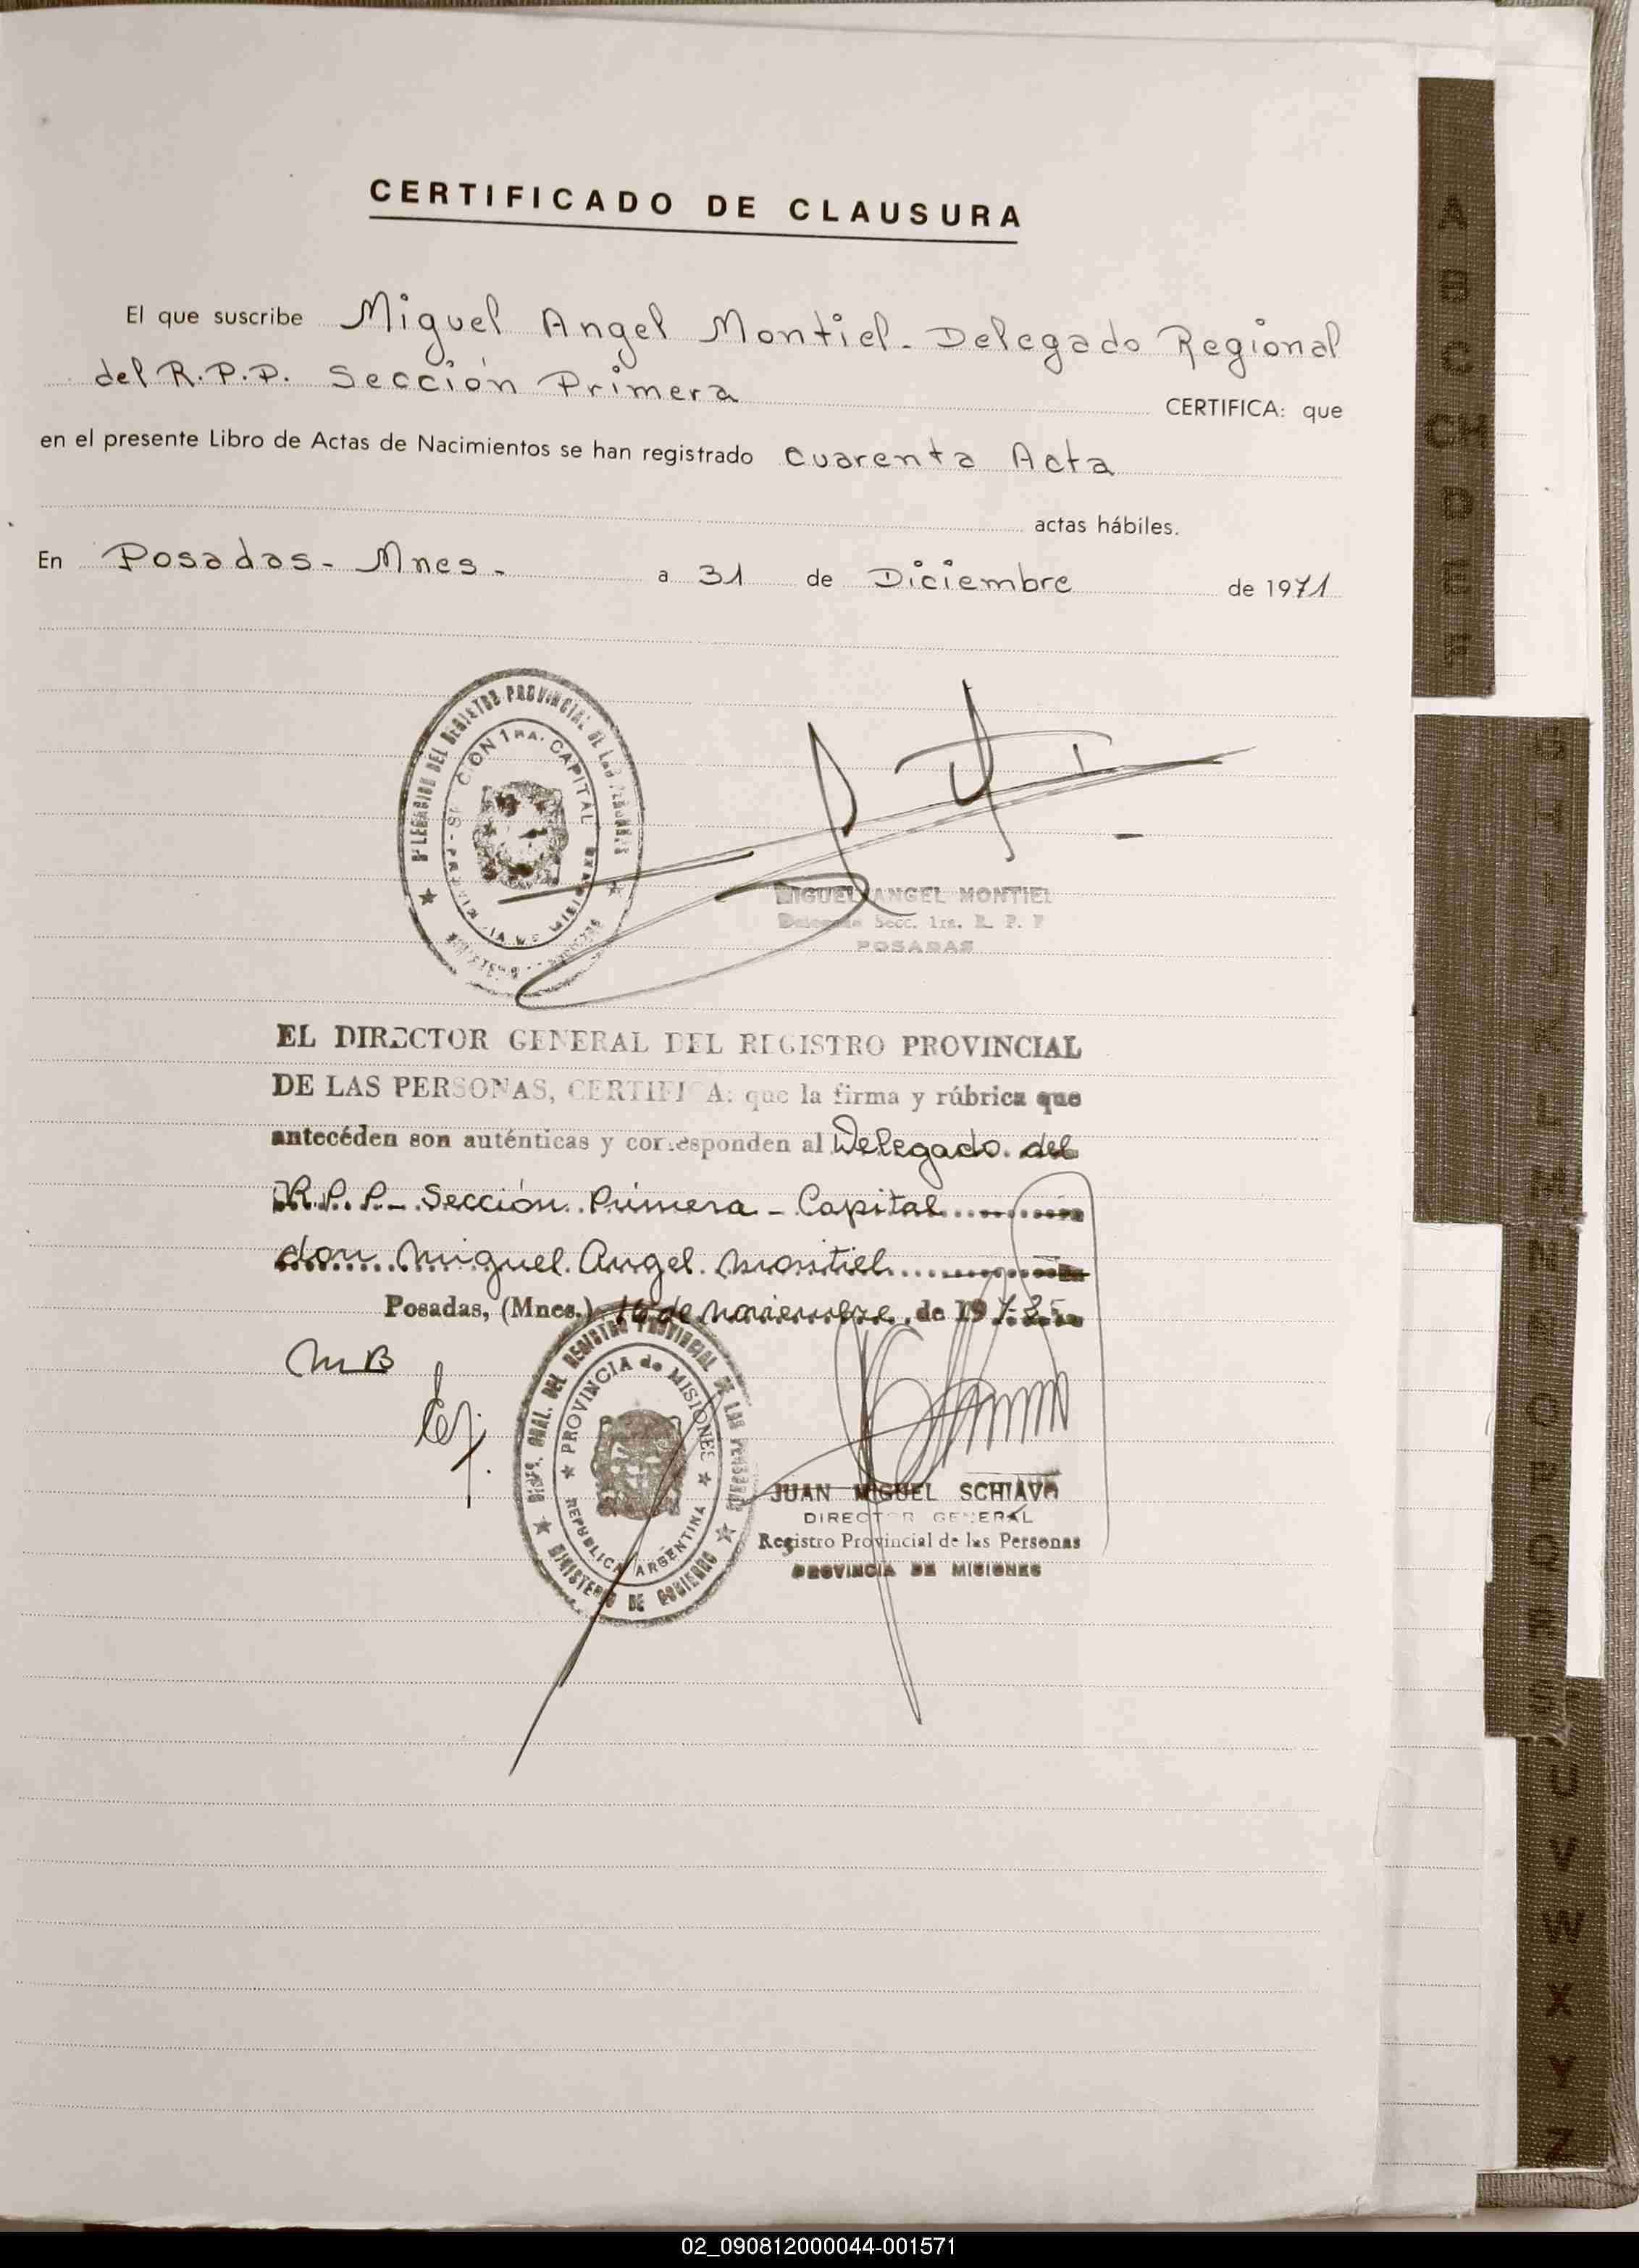 CERTIFICADO DE CLAUSURA
El que suscribe Miguel Angel Montiel - Delegado Regional
del R.P.P. Sección Primera CERTIFICA: que
en el presente Libro de Actas de Nacimientos se han registrado cuarenta Acta
actas hábiles.
En Posadas - Mnes - a 31 de Diciembre de 1971
DEL REGISTRO PROVINCIAL DE LAS
CION 1RA. CAPITAL
MIGUEL ANGEL MONTIEL
Delegado Secc. 1ra. R. P. P
POSADAS
EL DIRECTOR GENERAL DEL REGISTRO PROVINCIAL
DE LAS PERSONAS, CERTIFICA: que la firma y rúbrica que
antecéden son auténticas y corresponden al Delegado del
R.P.P. - Sección Primera - Capital
don Miguel Angel Montiel
Posadas, (Mnes.) 16 de noviembre de 19
MB
GRAL. DEL REGISTRO PROVINCIAL DE LAS PERSONAS
PROVINCIA de MISIONES
REPUBLICA ARGENTINA
MINISTERIO DE GOBIERNO
JUAN MIGUEL SCHIAVO
DIRECTOR GENERAL
Registro Provincial de las Personas
PROVINCIA DE MISIONES
A
B
C
CH
D
E
F
U
V
W
X
Y
Z
02_090812000044-001571